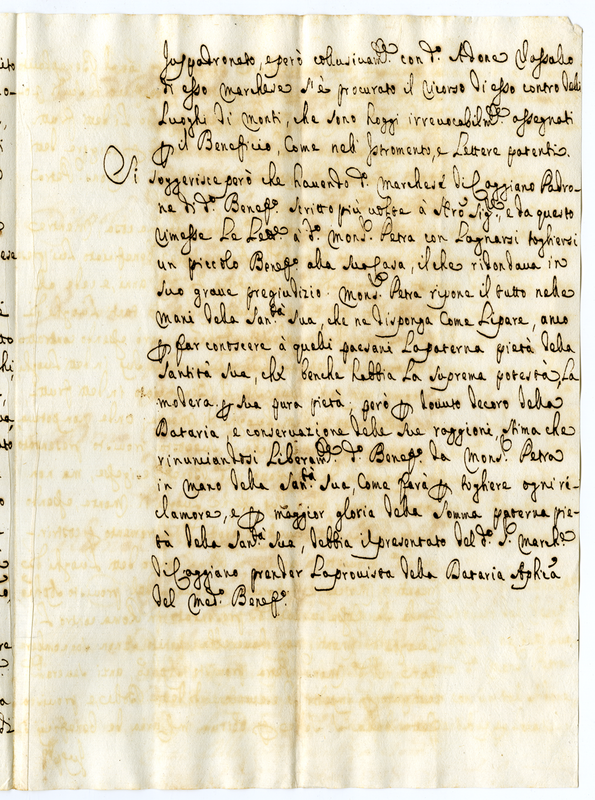 Juspadronato, e però collusivam.te con d.o Adone Vassallo
di esso Marchese s'è procurato il ricorso di esso contro delli
Luoghi di Monti, che sono hoggi irrevocabilm.te assegnati
p il Beneficio, Come nell' Istromento, e Lettere patenti.
Si soggerisce però che havendo d.o Marchese di Caggiano Padro-
ne di d.o Benef.o scritto più volte à S.ig.e, e da questo
rimesse Le Lett.e a d.o Mons.r Petra con Lagnarsi togliersi
un piccolo Benef.o alla sua Casa, il che ridondava in
suo grave pregiudizio. Mons.r Petra ripone il tutto nelle
mani della San.tà Sua, che ne disponga Come Li pare, anco
p far conoscere à quelli paesani La paterna pietà della
Santità Sua, che benche habbia La suprema potestà, La
modera p sua pura pietà, però p dovuto decoro della
Dataria, e conservazione delle sue raggioni, stima che
rinunciandosi Liberam.te d.o Benef.o da Mons.r Petra
in mano della San.tà Sua, Come farà p togliere ogni re-
clamore, e p maggior gloria della somma paterna pie-
tà della San.tà Sua, debbia il presentato del d.o S.r March.e
di Caggiano prender La provista della Dataria Ap.lica
del med.o Benef.o